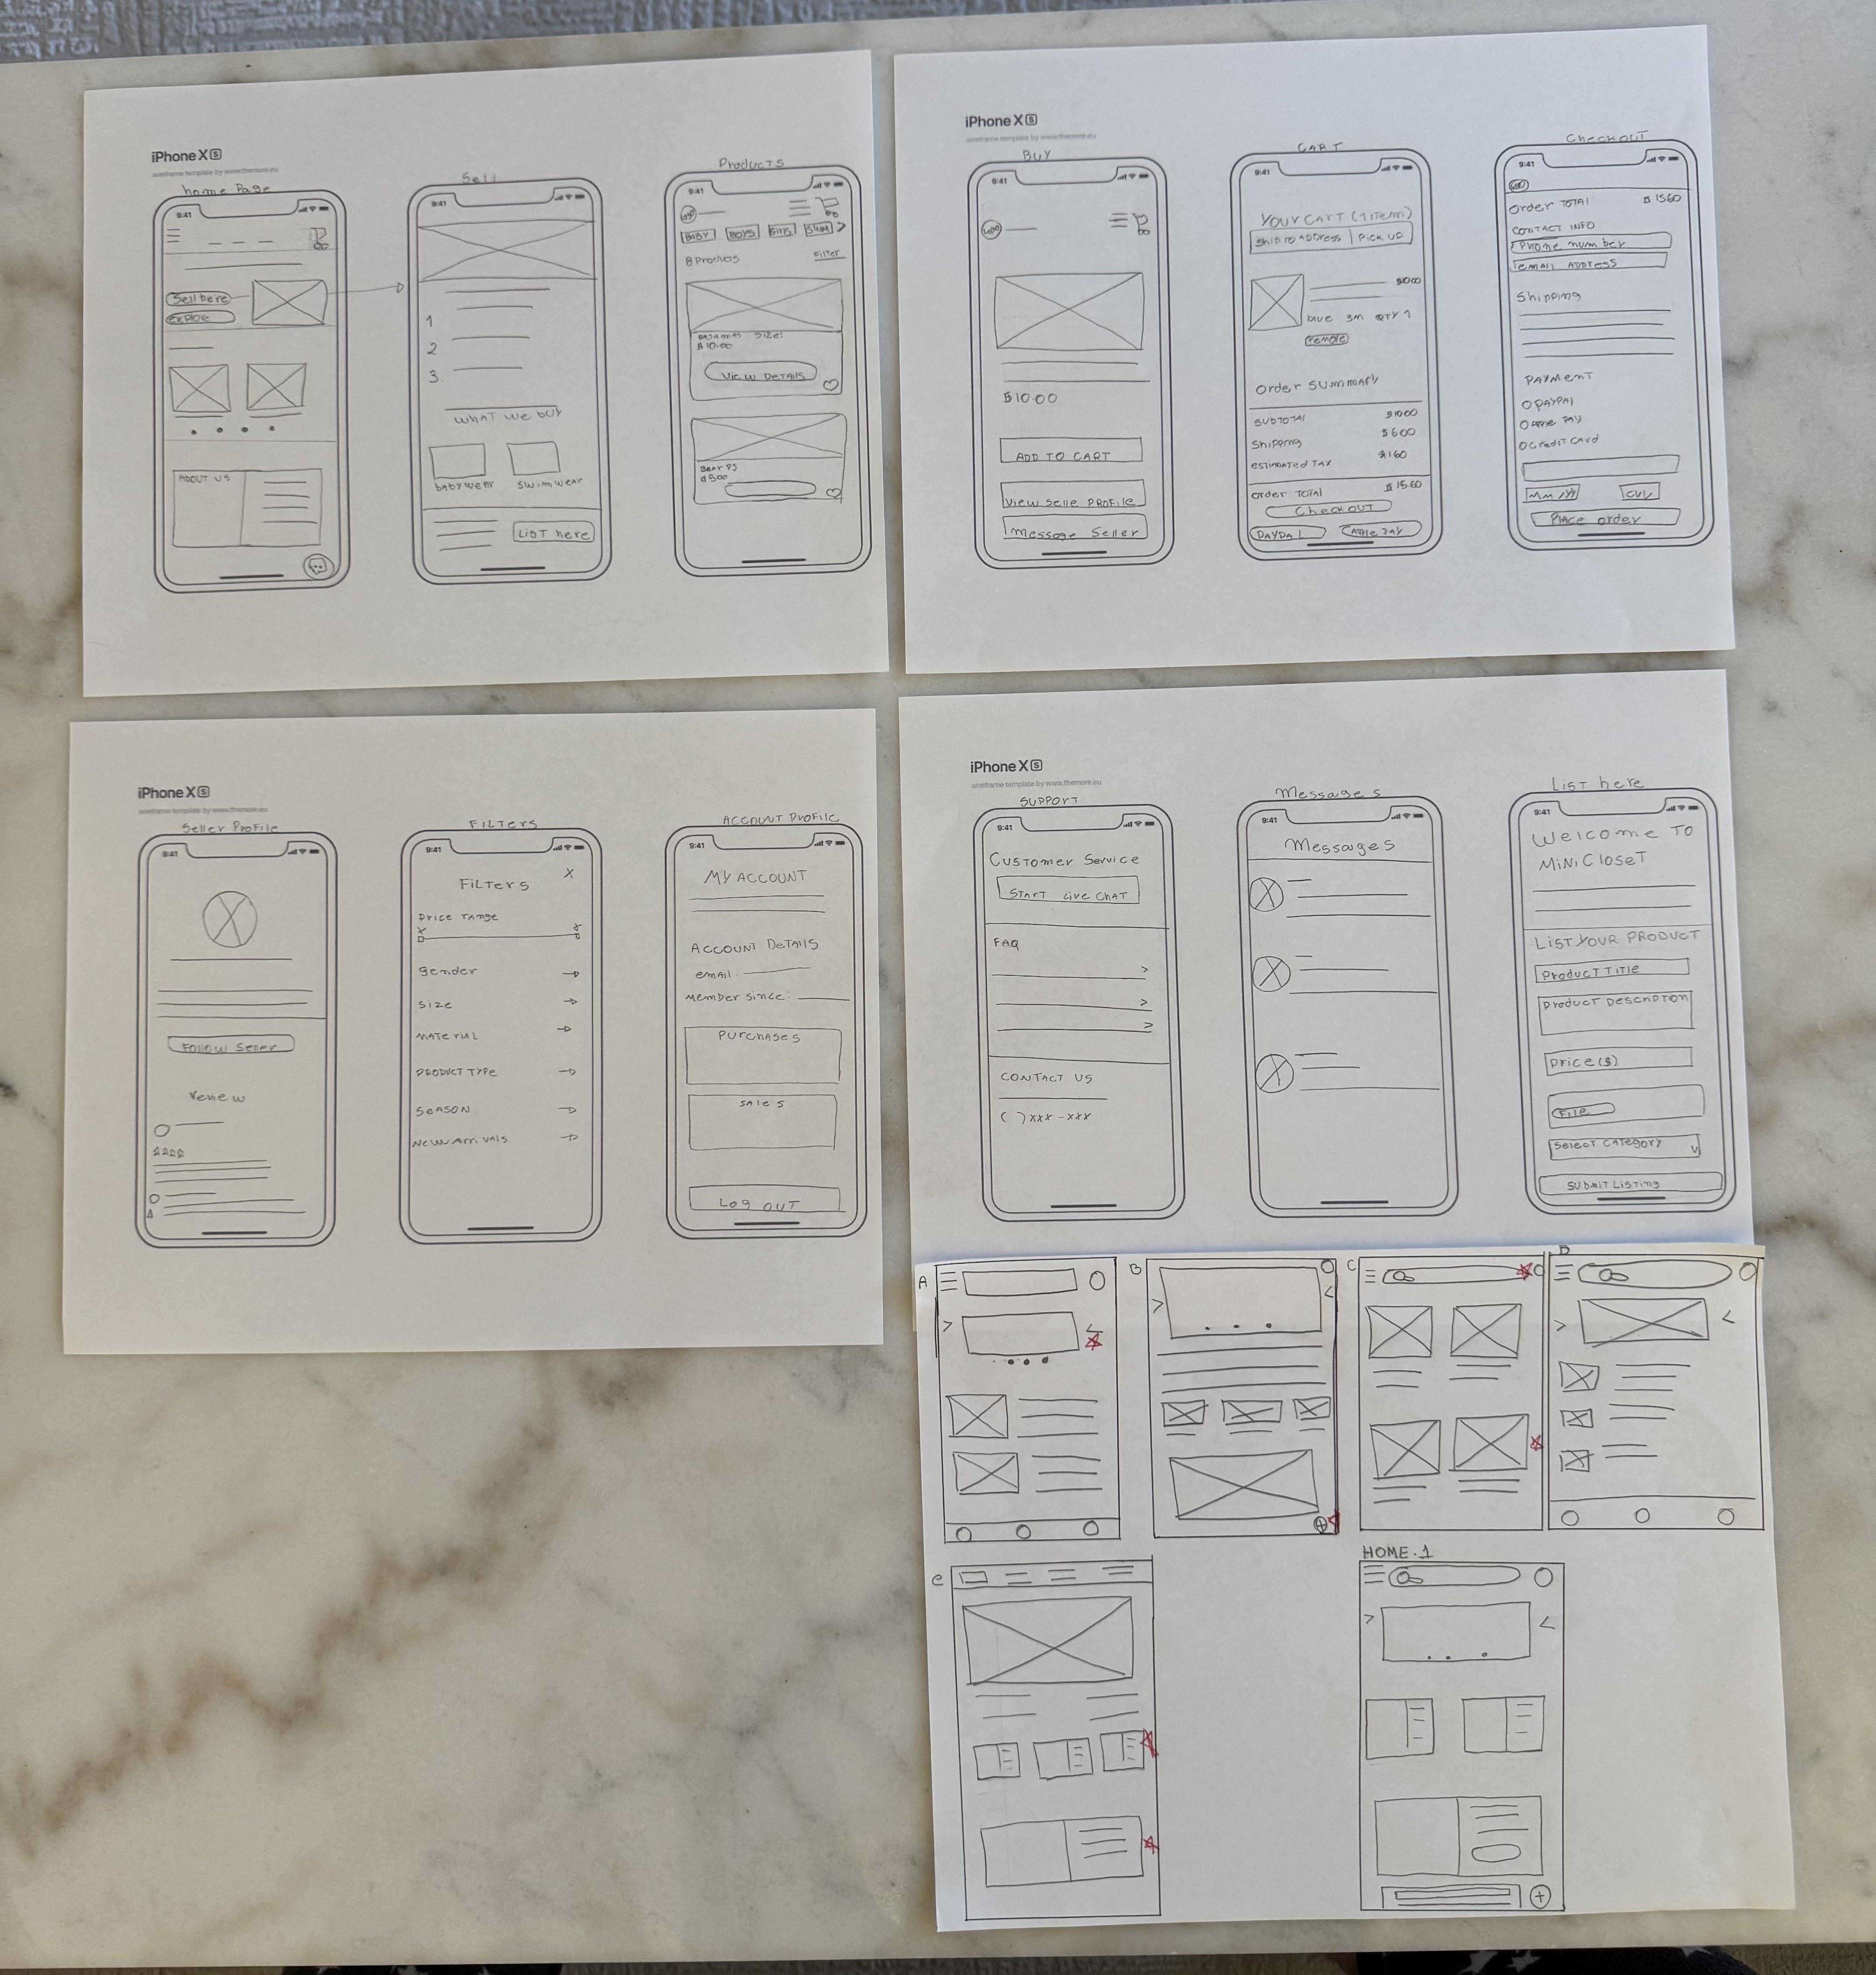 iPhone XS
wireframe template by www.themore.eu
home Page
9:41
Sell here
explore
ABOUT US
Sell
9:41
1
2
3.
WHAT we buy
babywear
swimwear
LIST here
Products
9:41
BABY BOYS GIRLS SWIM >
8 Products
Filter
PAJAMAS SIZE:
$10.00
View DETAILS
$5.00
iPhone XS
wireframe template by www.themore.eu
BUY
9:41
LOGO
$10.00
ADD TO CART
View Selle PROFILE
Message Seller
CART
9:41
YOUR CART (1 ITEM)
Ship TO ADDRESS | PICK UP
$10.00
blue 3m QTY 1
remove
Order SUMMARY
SUBTOTAL $10.00
Shipping $6.00
ESTIMATED TAX
Order TOTAL $15.60
CHECKOUT
PAYPAL
APPLE PAY
CHECKOUT
9:41
Order TOTAL: $15.60
CONTACT INFO
Phone number
EMAIL ADDRESS
Shipping
PAYMENT
O PAYPAL
O APPLE PAY
O Credit Card
MM/YY
CVV
PLACE order
iPhone XS
wireframe template by www.themore.eu
Seller PROFILE
9:41
FOLLOW Seller
review
FILTERS
9:41
X
FILTERS
Price range
gender
SIZE
MATERIAL
PRODUCT TYPE
SEASON
NEW Arrivals
ACCOUNT PROFILE
9:41
MY ACCOUNT
ACCOUNT DETAILS
email:
Member since:
PURCHASES
SALES
LOG OUT
iPhone XS
wireframe template by www.themore.eu
SUPPORT
9:41
CUSTOMER Service
START Live CHAT
FAQ
>
>
>
CONTACT US
( ) xxx - xxx
Messages
9:41
Messages
LIST here
9:41
Welcome TO
MiNi CLOSET
LIST YOUR PRODUCT
PRODUCT TITLE
PRODUCT DESCRIPTION
Price($)
FILE
Select CATEGORY
SUBMIT LISTING
A
B
C
D
e
HOME.1